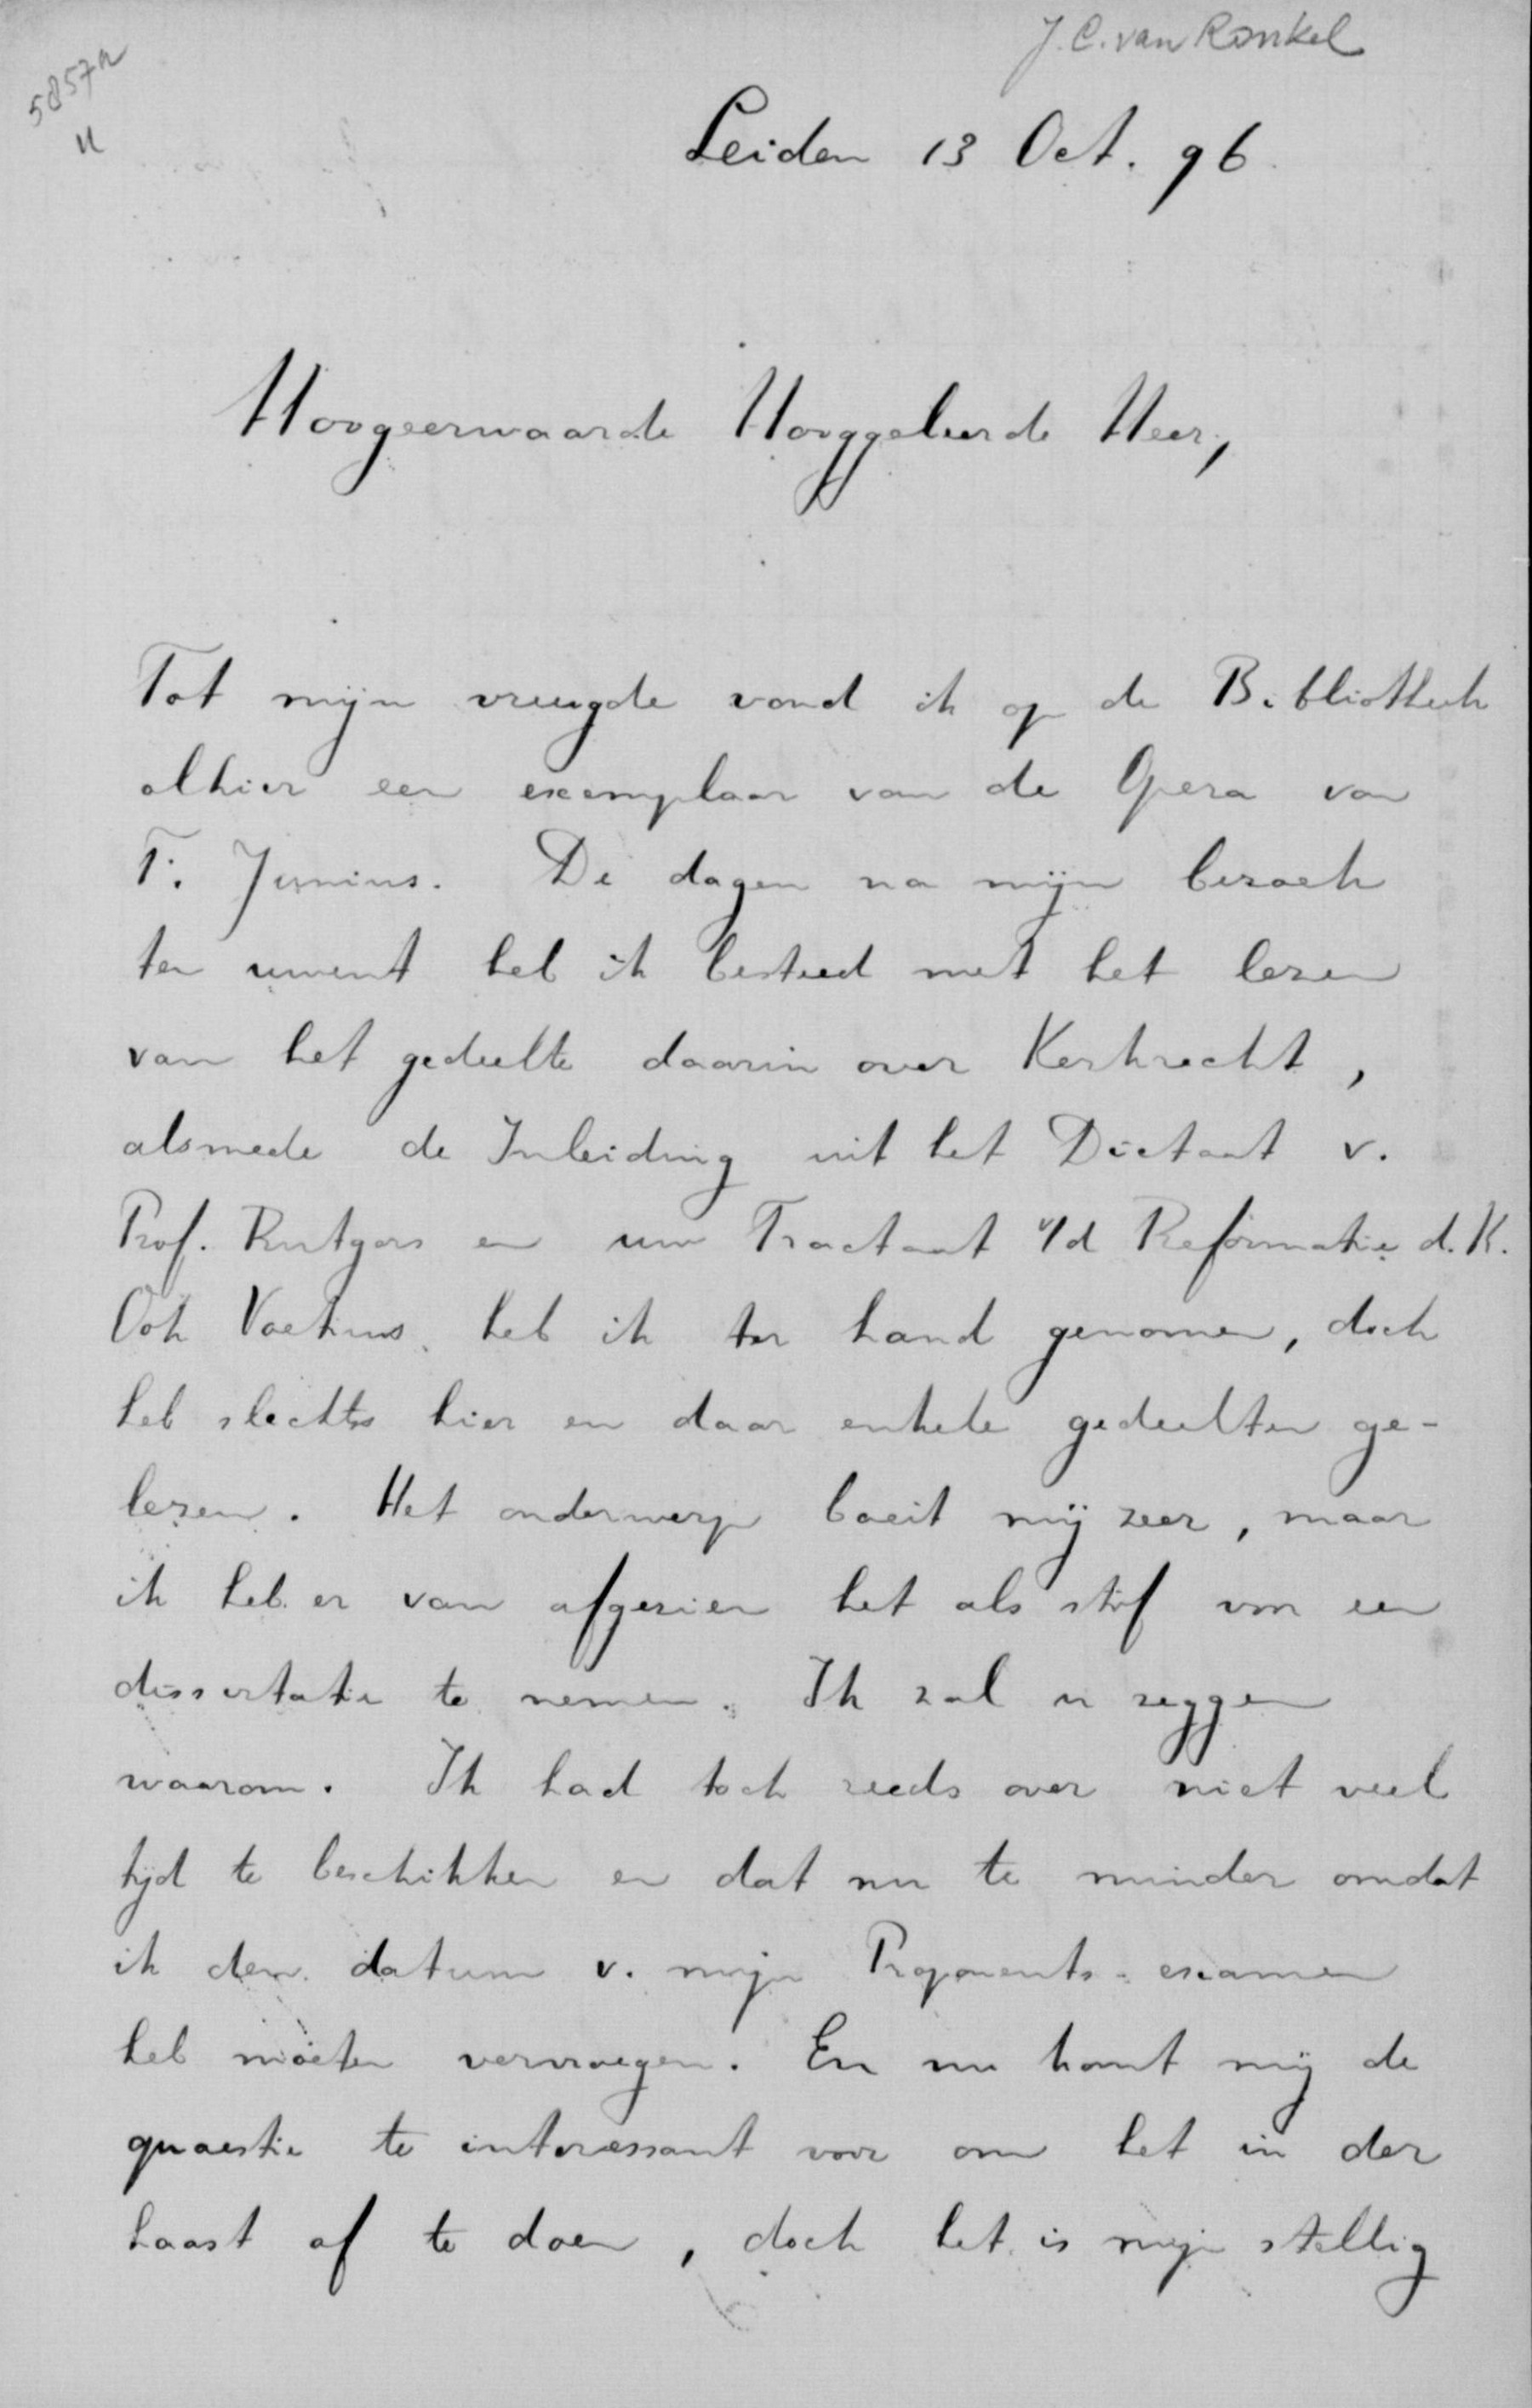 J. C. van Ronkel
5857a
Leiden 13 Oct. 96.
Hoogeerwaarde Hooggeleerde Heer,
Tot mijn vreugde vond ik op de Bibliotheek
alhier een exemplaar van de Opera van
F. Junius. De dagen na mijn bezoek
ten uwent heb ik besteed met het lezen
van het gedeelte daarin over Kerkrecht,
alsmede de Inleiding uit het Dictaat v.
Prof. Rutgers en uw Tractaat v/d Reformatie d. K.
Ook Voetius heb ik ter hand genomen, doch
heb slechts hier en daar enkele gedeelten ge-
lezen. Het onderwerp boeit mij zeer, maar
ik heb er van afgezien het als stof voor een
dissertatie te nemen. Ik zal u zeggen
waarom. Ik had toch reeds over niet veel
tijd te beschikken en dat nu te minder omdat
ik den datum v. mijn Proponents-examen
heb moeten vervroegen. En nu komt mij de
quaestie te interessant voor om het in der
haast af te doen, doch het is mijn stellig